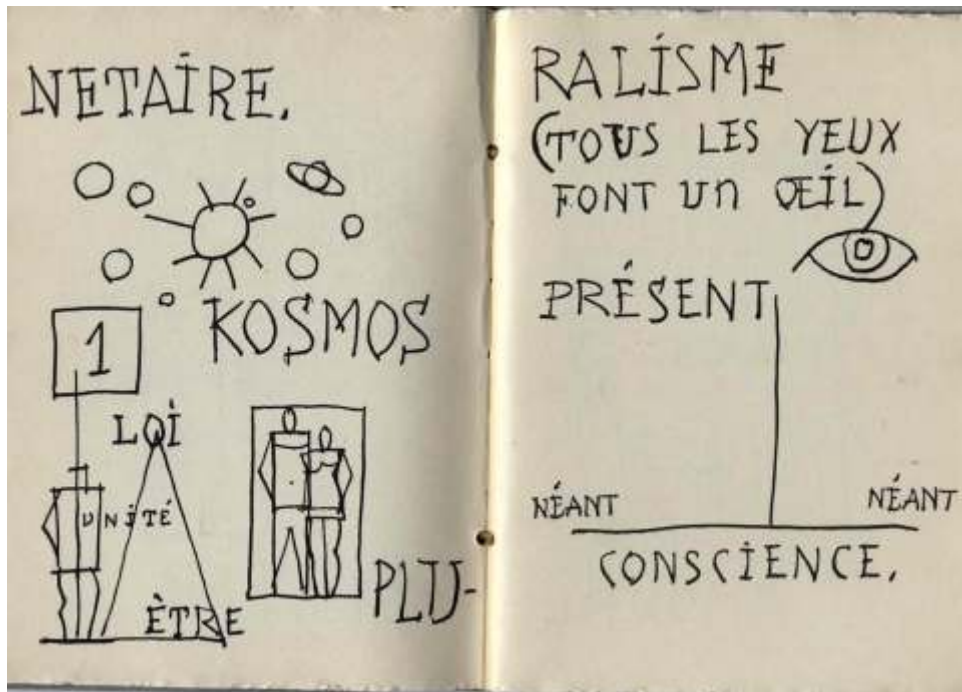 NETAIRE.
KOSMOS
1
LOI
UNITÉ
ÈTRE
PLU-
RALISME
(TOUS LES YEUX
FONT UN ŒIL)
PRÉSENT
NÉANT
NÉANT
CONSCIENCE.